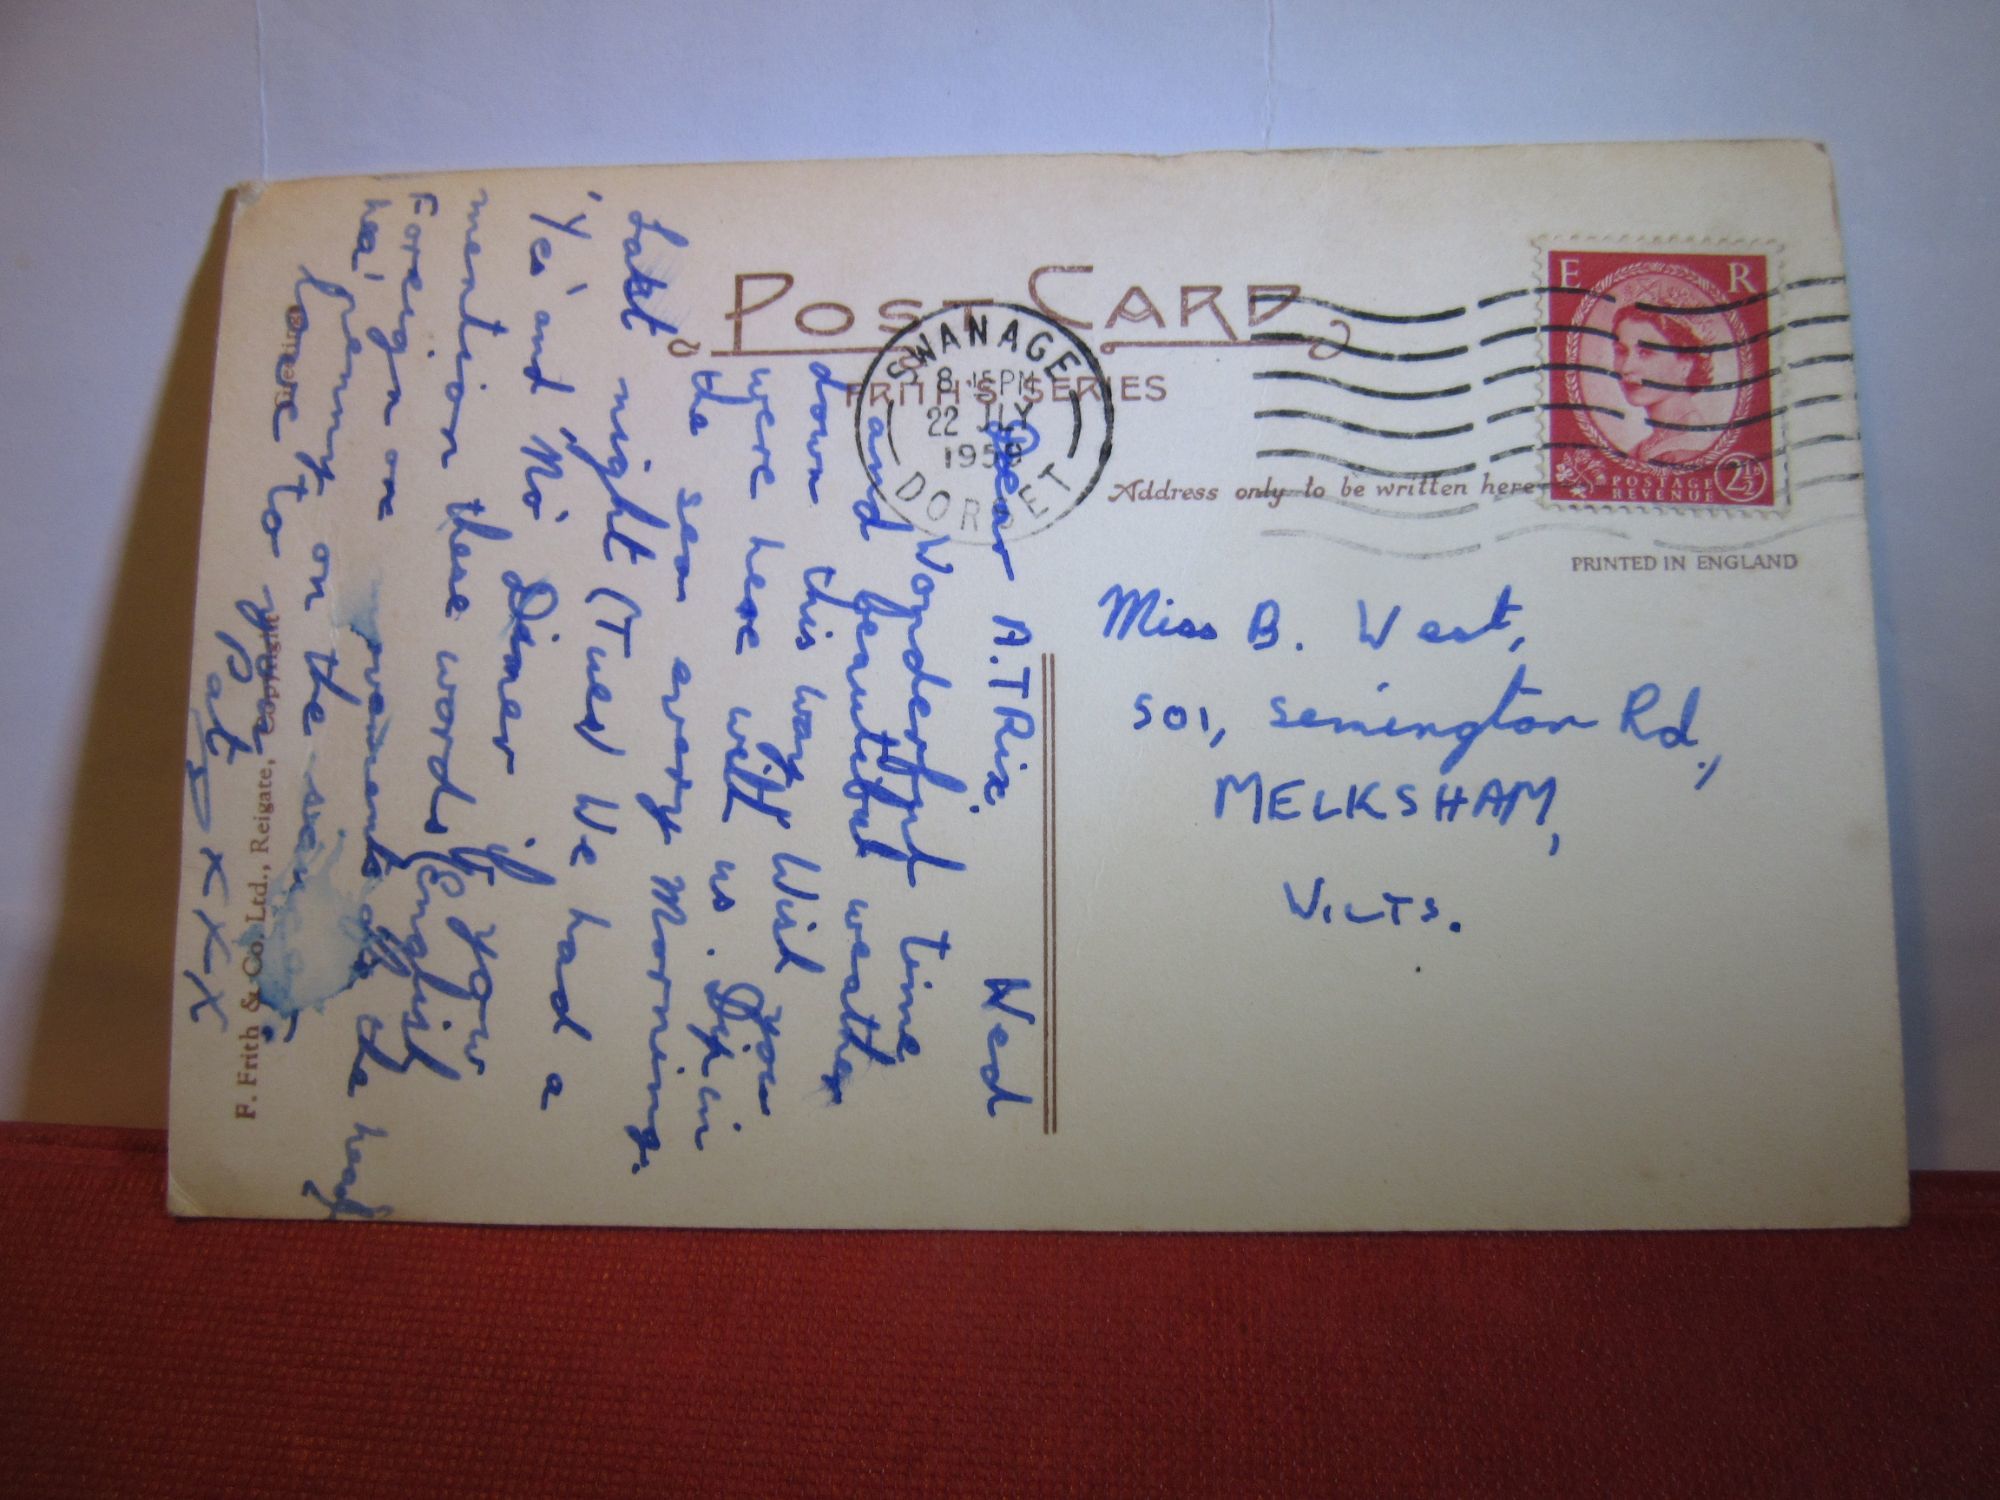 POST CARD
FRITH'S SERIES
Address only to be written here
SWANAGE
8.15PM
22 JLY
DORSET
E R
POSTAGE
REVENUE
2½D
PRINTED IN ENGLAND
Miss B. West,
501, Semington Rd.,
MELKSHAM,
WILTS.
Wed
Dear A.TRix,
Wonderful time
and beautiful weather
down this way. Wish you
were here with us. Dip in
the sea every morning.
Last night (Tues) We had a
'Yes' and 'No' Dinner if you
mention these words English
Foreign one of the hand
hea, penny on the
Love to you
Pat
x x x x
F. Frith & Co. Ltd., Reigate, Copyright